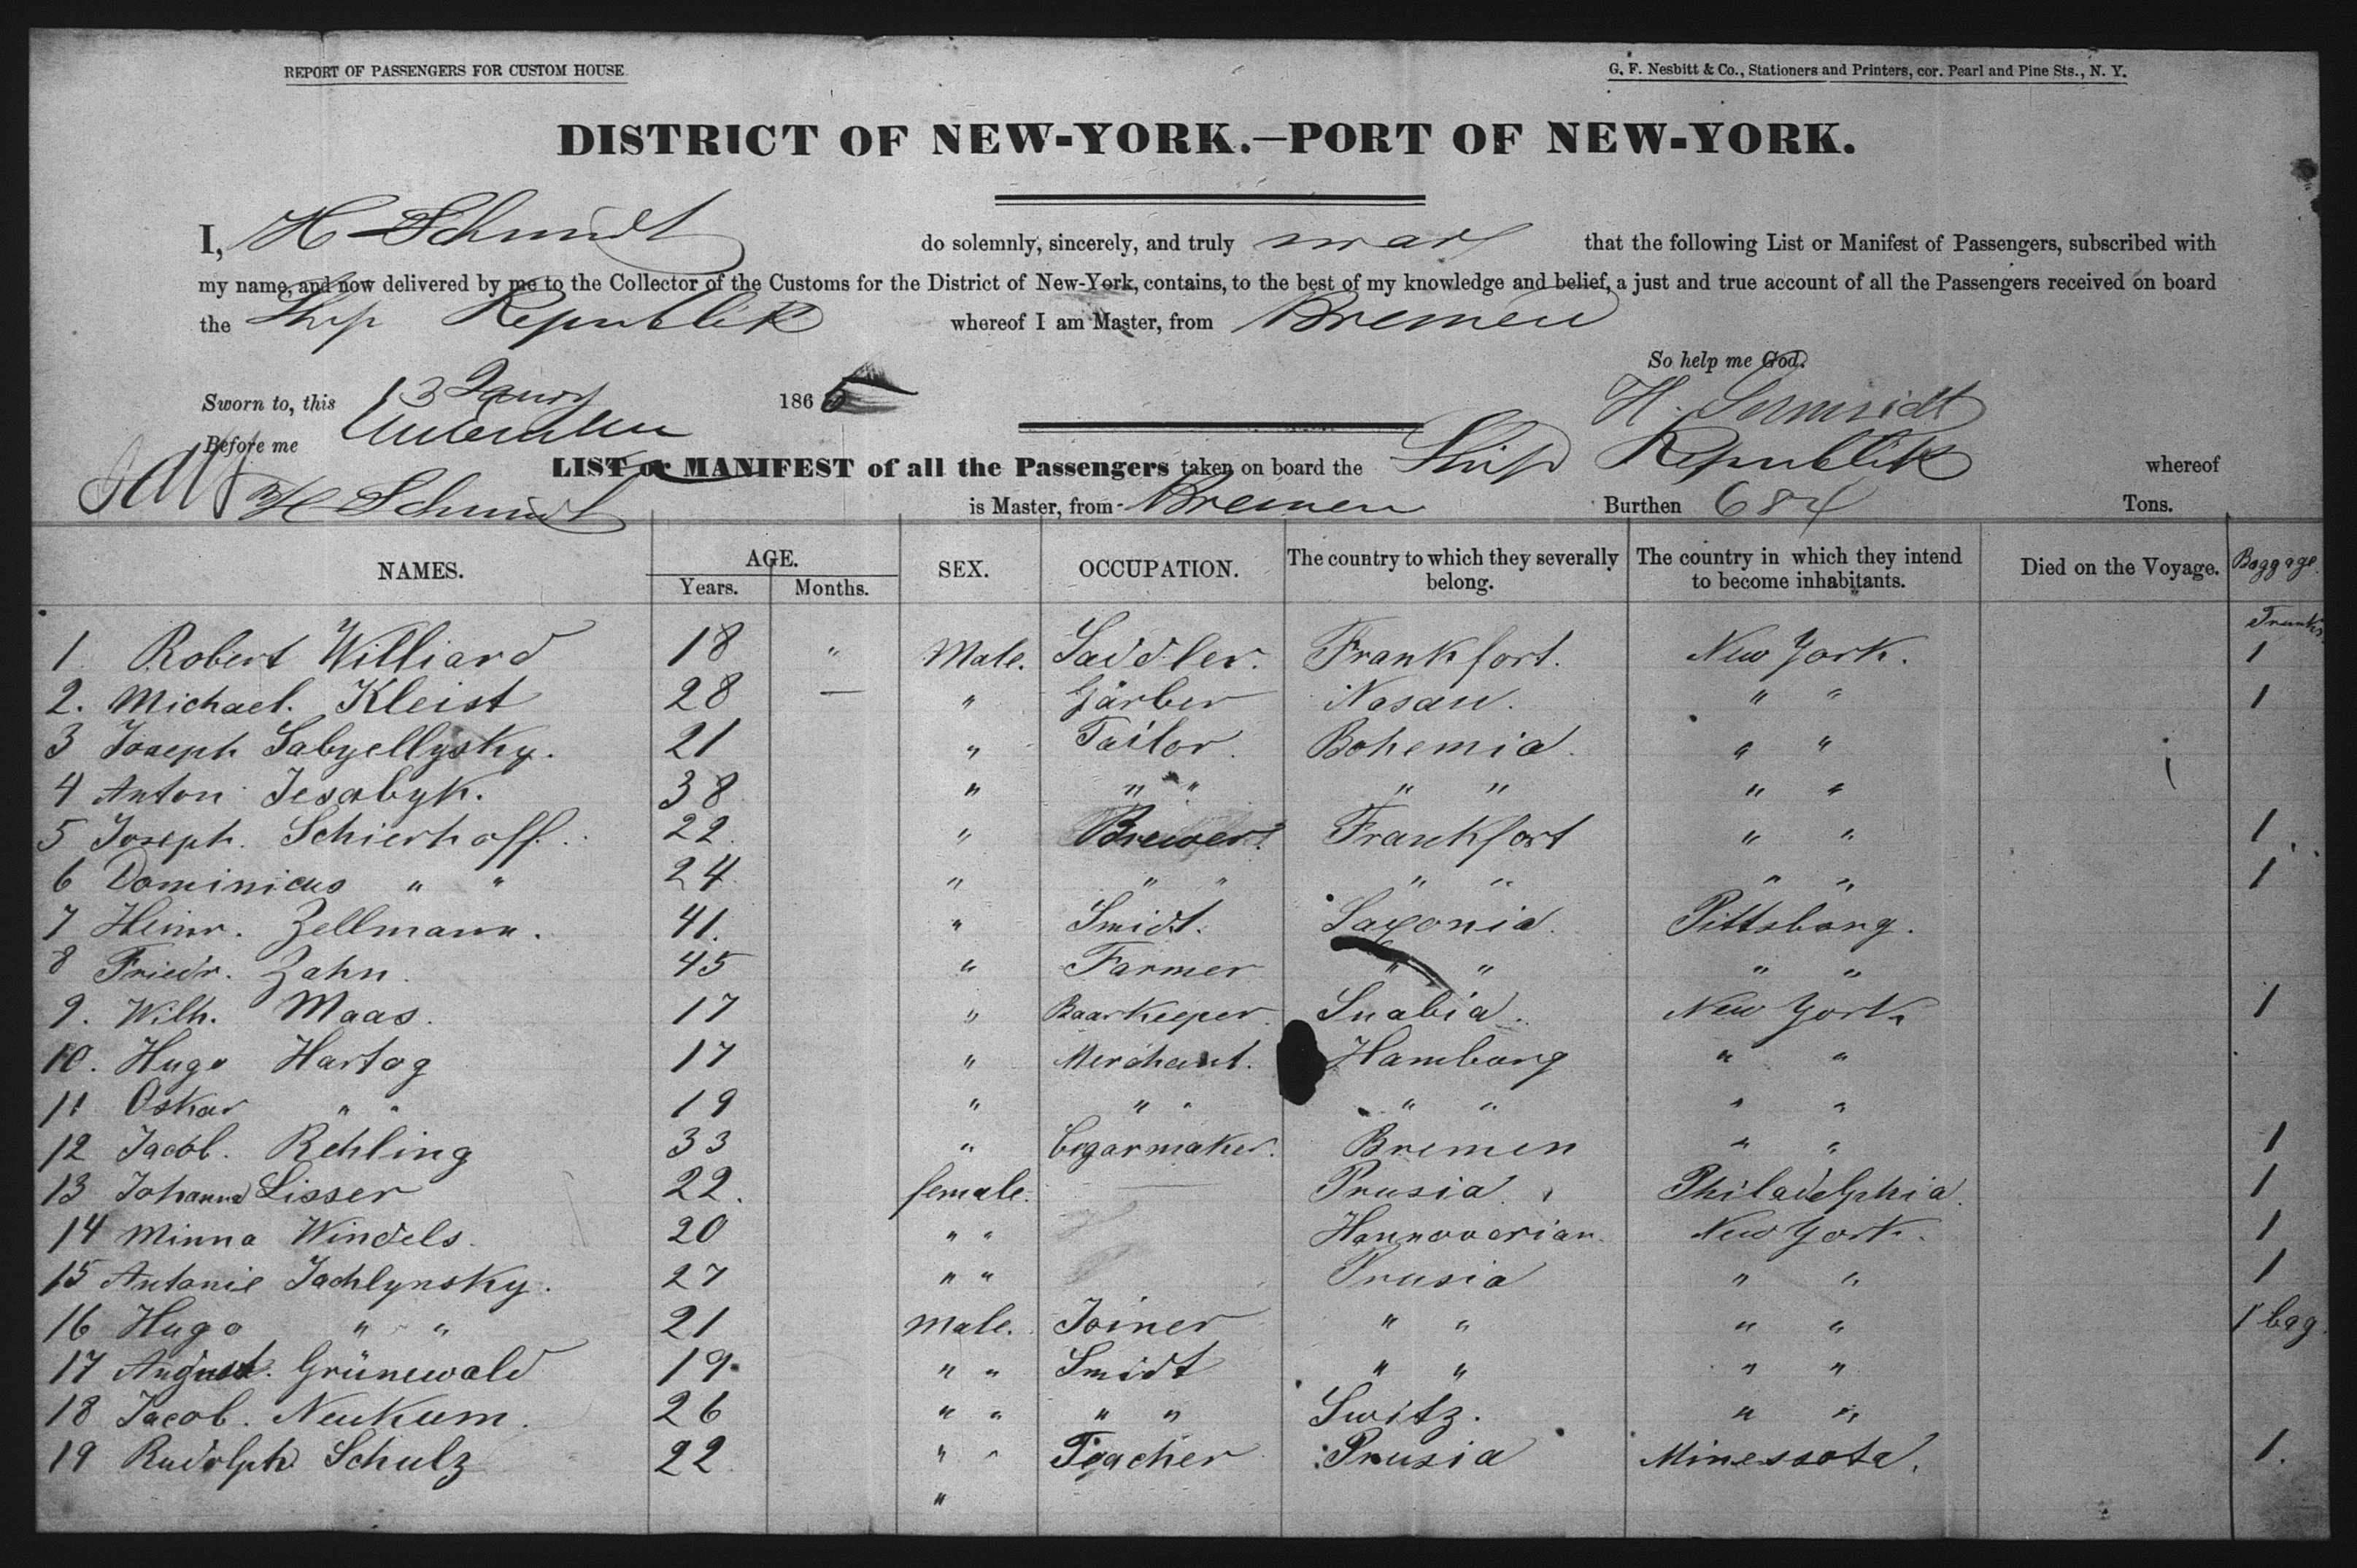 REPORT OF PASSENGERS FOR CUSTOM HOUSE
G. F. Nesbitt & Co., Stationers and Printers, cor. Pearl and Pine Sts., N. Y.
DISTRICT OF NEW-YORK.—PORT OF NEW-YORK.
I, H Schmidt do solemnly, sincerely, and truly swear that the following List or Manifest of Passengers, subscribed with
my name, and now delivered by me to the Collector of the Customs for the District of New-York, contains, to the best of my knowledge and belief, a just and true account of all the Passengers received on board
the Ship Republik whereof I am Master, from Bremen
So help me God.
Sworn to, this 13 Jany 186 H. Schmidt
Before me
LIST or MANIFEST of all the Passengers taken on board the Ship Republik whereof
H Schmidt is Master, from Bremen Burthen 684 Tons.
NAMES. AGE. Years. Months. SEX. OCCUPATION. The country to which they severally belong. The country in which they intend to become inhabitants. Died on the Voyage. Baggage.
Trunks
1 Robert Williard 18 " Male. Saddler. Frankfort. New York. 1
2. Michael. Kleist 28 — " Gärber Nasau. " " 1
3 Joseph Sabyellysky. 21 " Tailor. Bohemia. " "
4 Anton Jesabyk. 38 " " " " " " "
5 Joseph. Schierhoff. 22. " Brewer. Frankfort " " 1
6 Dominicus " " 24 " " " " " " " 1
7 Heinr. Zellmann. 41. " Smidt. Saxonia. Pittsborg.
8 Friedr. Zahn. 45 " Farmer " " " "
9. Wilh. Maas. 17 " Baarkeeper. Suabia. New York 1
10. Hugo Hartog 17 " Merchant. Hamborg " "
11 Oskar " " 19 " " " " " " "
12 Jacob. Rehling 33 " Cigarmaker. Bremen " " 1
13 Johanna Lisser 22. female. — Prusia. Philadelphia. 1
14 Minna Windels. 20 " " Hannovarian. New York. 1
15 Antonie Jachlynsky. 27 " " Prusia " " 1
16 Hugo " " 21 Male. Joiner " " " " 1 bag.
17 August. Grünewald 19. " " Smidt " " " "
18 Jacob. Neukum. 26 " " " " Switz. " "
19 Rudolph Schulz 22 " " Teacher Prusia Minessota. 1.
"